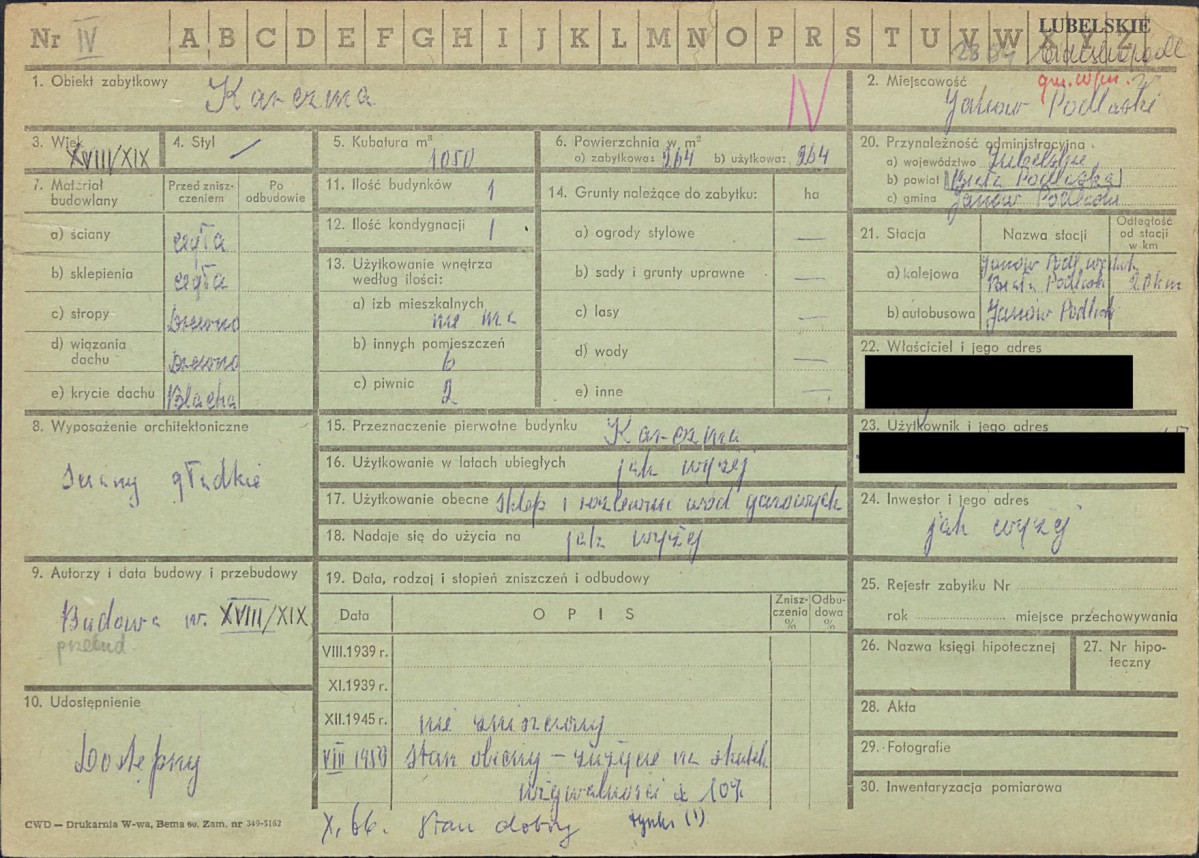 Nr IV A B C D E F G H I J K L M N O P R S T U V W X Y Z
LUBELSKIE
1. Obiekt zabytkowy Karczma
IV
2. Miejscowość
Janów Podlaski
3. Wiek XVIII/XIX
4. Styl —
5. Kubatura m³ 1050
6. Powierzchnia w m²
a) zabytkowa: 264 b) użytkowa: 264
20. Przynależność administracyjna
a) województwo Lubelskie
b) powiat Biała Podlaska
c) gmina Janów Podlaski
7. Materiał budowlany
Przed zniszczeniem
Po odbudowie
a) ściany cegła
b) sklepienia cegła
c) stropy Drewno
d) wiązania dachu Drewno
e) krycie dachu Blacha
11. Ilość budynków 1
12. Ilość kondygnacji 1
13. Użytkowanie wnętrza
według ilości:
a) izb mieszkalnych
nie ma
b) innych pomieszczeń
6
c) piwnic 2
14. Grunty należące do zabytku: ha
a) ogrody stylowe —
b) sady i grunty uprawne —
c) lasy —
d) wody —
e) inne —
21. Stacja Nazwa stacji Odległość od stacji w km
a) kolejowa Janów Podl.
Biała Podlask 20 km
b) autobusowa Janów Podlask
22. Właściciel i jego adres
23. Użytkownik i jego adres
8. Wyposażenie architektoniczne
ściany gładkie
15. Przeznaczenie pierwotne budynku Karczma
16. Użytkowanie w latach ubiegłych jak wyżej
17. Użytkowanie obecne sklep i rozlewnia wód gazowych
18. Nadaje się do użycia na jak wyżej
24. Inwestor i jego adres
jak wyżej
9. Autorzy i data budowy i przebudowy
Budowa w. XVIII/XIX
przebud.
19. Data, rodzaj i stopień zniszczeń i odbudowy
Data OPIS Zniszczenia % Odbudowa %
VIII.1939 r.
XI.1939 r.
XII.1945 r. nie zniszczony
VIII 1959 Stan obecny – zużycie na skutek
używalności 10%
X. 66. Stan dobry tynki (!)
25. Rejestr zabytku Nr
rok miejsce przechowywania
26. Nazwa księgi hipotecznej
27. Nr hipoteczny
28. Akta
29. Fotografie
30. Inwentaryzacja pomiarowa
10. Udostępnienie
Dostępny
CWD — Drukarnia W-wa, Bema 60. Zam. nr 349-5162